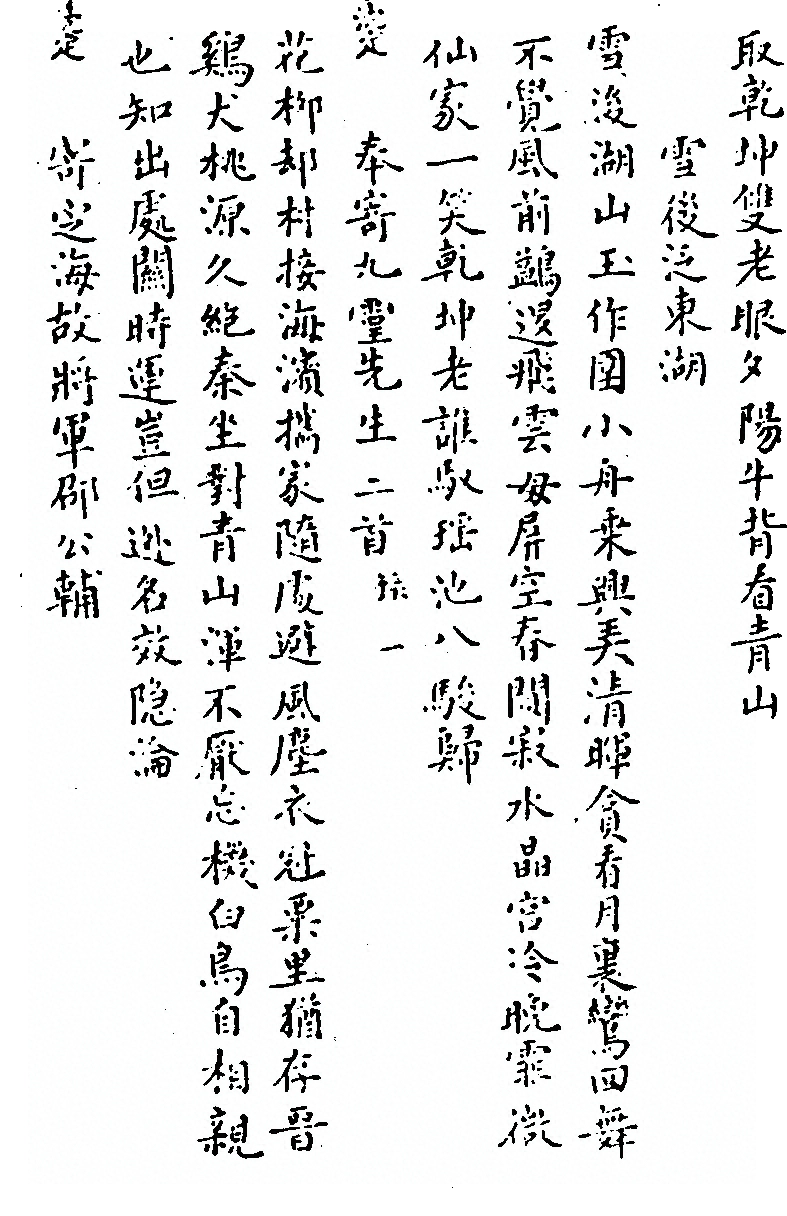 取乾坤雙老眼夕陽牛背看青山
雪後泛東湖
雪後湖山玉作圍小舟乘興美清暉貪看月裏鸞回舞
不覺風前鷁退飛雲母屏空春闃寂水晶宮冷晚霏微
仙家一笑乾坤老誰馭瑤池八駿歸
奉寄九靈先生二首 錄一
花柳却村接海濱携家隨處避風塵衣冠栗里猶存晋
鷄犬桃源久絶秦坐對青山渾不厭忘機白鳥自相親
也知出處關時運豈但逃名效隐淪
寄定海故將軍邵公輔